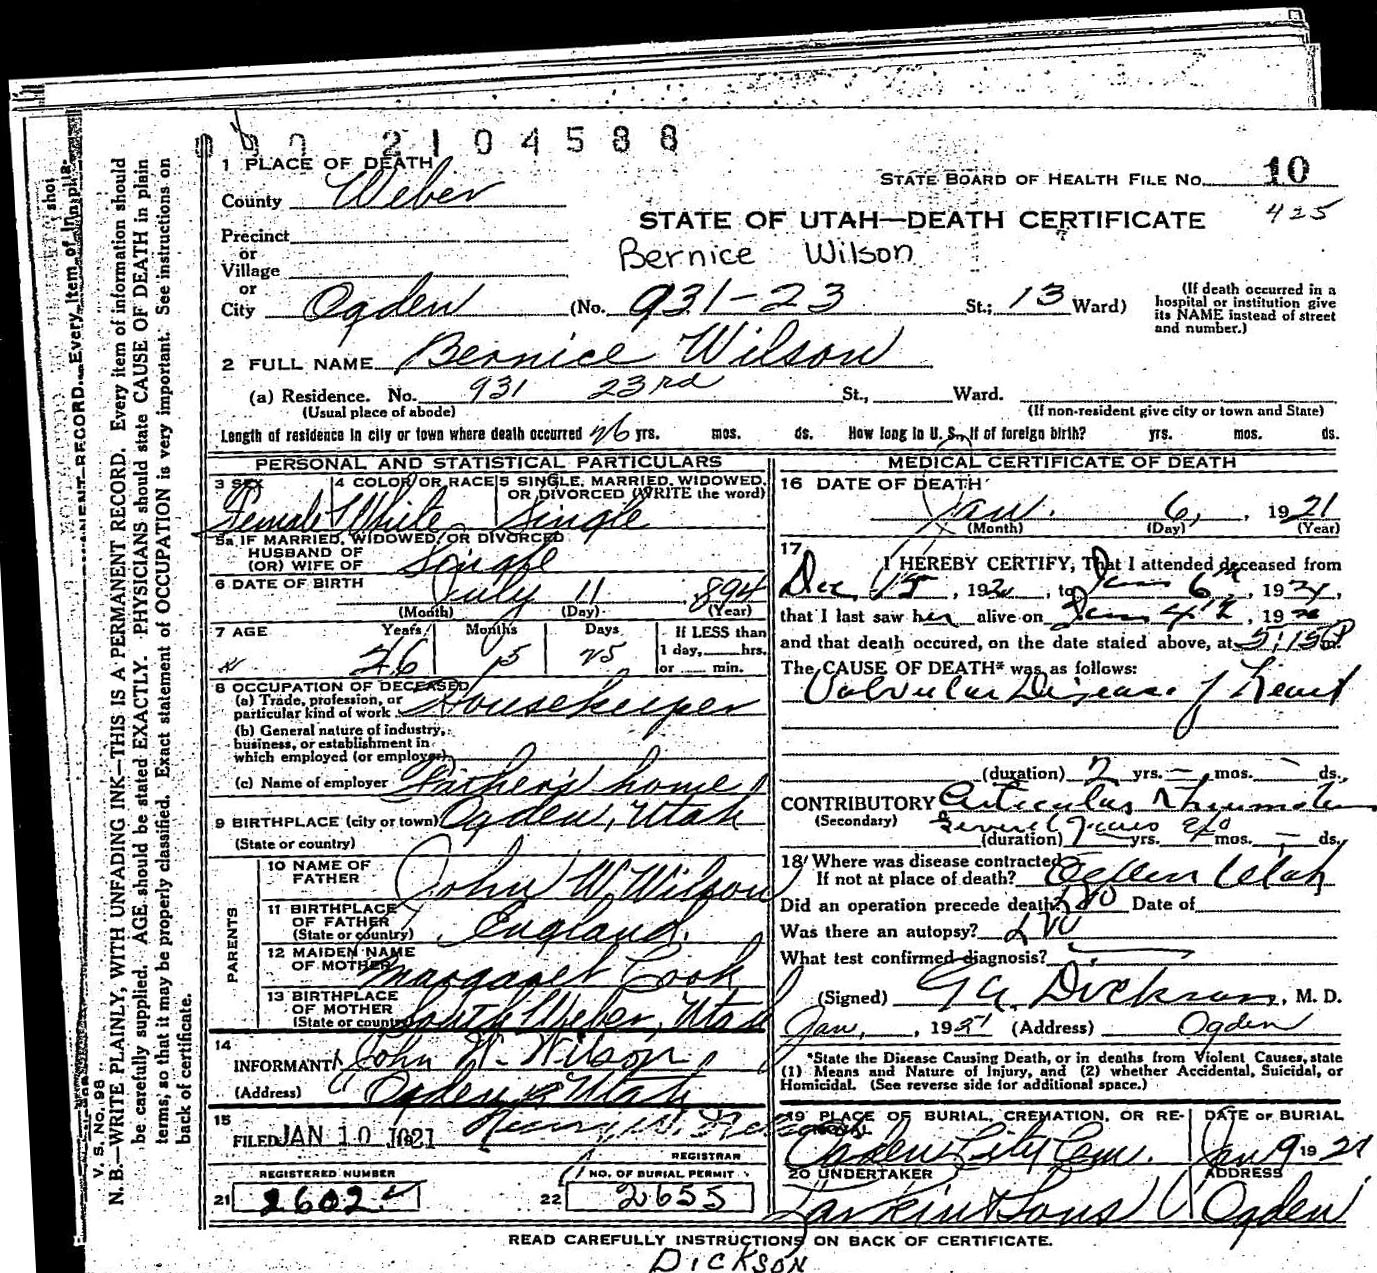 2104588
1 PLACE OF DEATH
County Weber
STATE BOARD OF HEALTH FILE No. 10
425
STATE OF UTAH—DEATH CERTIFICATE
Precinct
or
Village
or
Bernice Wilson
City Ogden (No. 931-23 St.; 13 Ward)
(If death occurred in a
hospital or institution give
its NAME instead of street
and number.)
2 FULL NAME Bernice Wilson
(a) Residence. No. 931 23rd St., Ward.
(Usual place of abode) (If non-resident give city or town and State)
Length of residence in city or town where death occurred 26 yrs. mos. ds. How long in U. S., if of foreign birth? yrs. mos. ds.
PERSONAL AND STATISTICAL PARTICULARS
3 SEX 4 COLOR OR RACE 5 SINGLE, MARRIED, WIDOWED,
OR DIVORCED (WRITE the word)
Female White Single
5a IF MARRIED, WIDOWED, OR DIVORCED
HUSBAND OF
(OR) WIFE OF Single
6 DATE OF BIRTH July 11 894
(Month) (Day) (Year)
7 AGE Years Months Days If LESS than
26 5 25 1 day, hrs.
or min.
8 OCCUPATION OF DECEASED
(a) Trade, profession, or
particular kind of work Housekeeper
(b) General nature of industry,
business, or establishment in
which employed (or employer)
(c) Name of employer Father's home
9 BIRTHPLACE (city or town) Ogden, Utah
(State or country)
PARENTS
10 NAME OF
FATHER John W. Wilson
11 BIRTHPLACE
OF FATHER
(State or country) England.
12 MAIDEN NAME
OF MOTHER Margaret Cook
13 BIRTHPLACE
OF MOTHER
(State or country) South Weber, Utah
14
INFORMANT John W. Wilson
(Address) Ogden Utah
15
FILED JAN 10 1921
REGISTRAR
REGISTERED NUMBER NO. OF BURIAL PERMIT
21 2602 22 2655
MEDICAL CERTIFICATE OF DEATH
16 DATE OF DEATH
Jan. 6, 1921
(Month) (Day) (Year)
17
I HEREBY CERTIFY, That I attended deceased from
Dec 15, 1920, to Jan 6th, 1921,
that I last saw her alive on Jan 4th, 19
and that death occured, on the date stated above, at 5:15 P m.
The CAUSE OF DEATH* was as follows:
Valvular Disease of Heart
(duration) 2 yrs. — mos. — ds.
CONTRIBUTORY Articular Rheumatism
(Secondary) Several years ago
(duration) yrs. mos. — ds.
18 Where was disease contracted
If not at place of death? Ogden Utah
Did an operation precede death? No Date of
Was there an autopsy? No
What test confirmed diagnosis?
(Signed) Dickson, M. D.
Jan, 1921 (Address) Ogden
*State the Disease Causing Death, or in deaths from Violent Causes, state
(1) Means and Nature of Injury, and (2) whether Accidental, Suicidal, or
Homicidal. (See reverse side for additional space.)
19 PLACE OF BURIAL, CREMATION, OR RE- DATE OF BURIAL
MOVAL
Ogden City Cem. Jan 9 1921
20 UNDERTAKER ADDRESS
Larkin & Sons Ogden
READ CAREFULLY INSTRUCTIONS ON BACK OF CERTIFICATE.
DICKSON
V. S. No. 98
N. B.—WRITE PLAINLY, WITH UNFADING INK—THIS IS A PERMANENT RECORD. Every item of information should
be carefully supplied. AGE should be stated EXACTLY. PHYSICIANS should state CAUSE OF DEATH in plain
terms, so that it may be properly classified. Exact statement of OCCUPATION is very important. See instructions on
back of certificate.